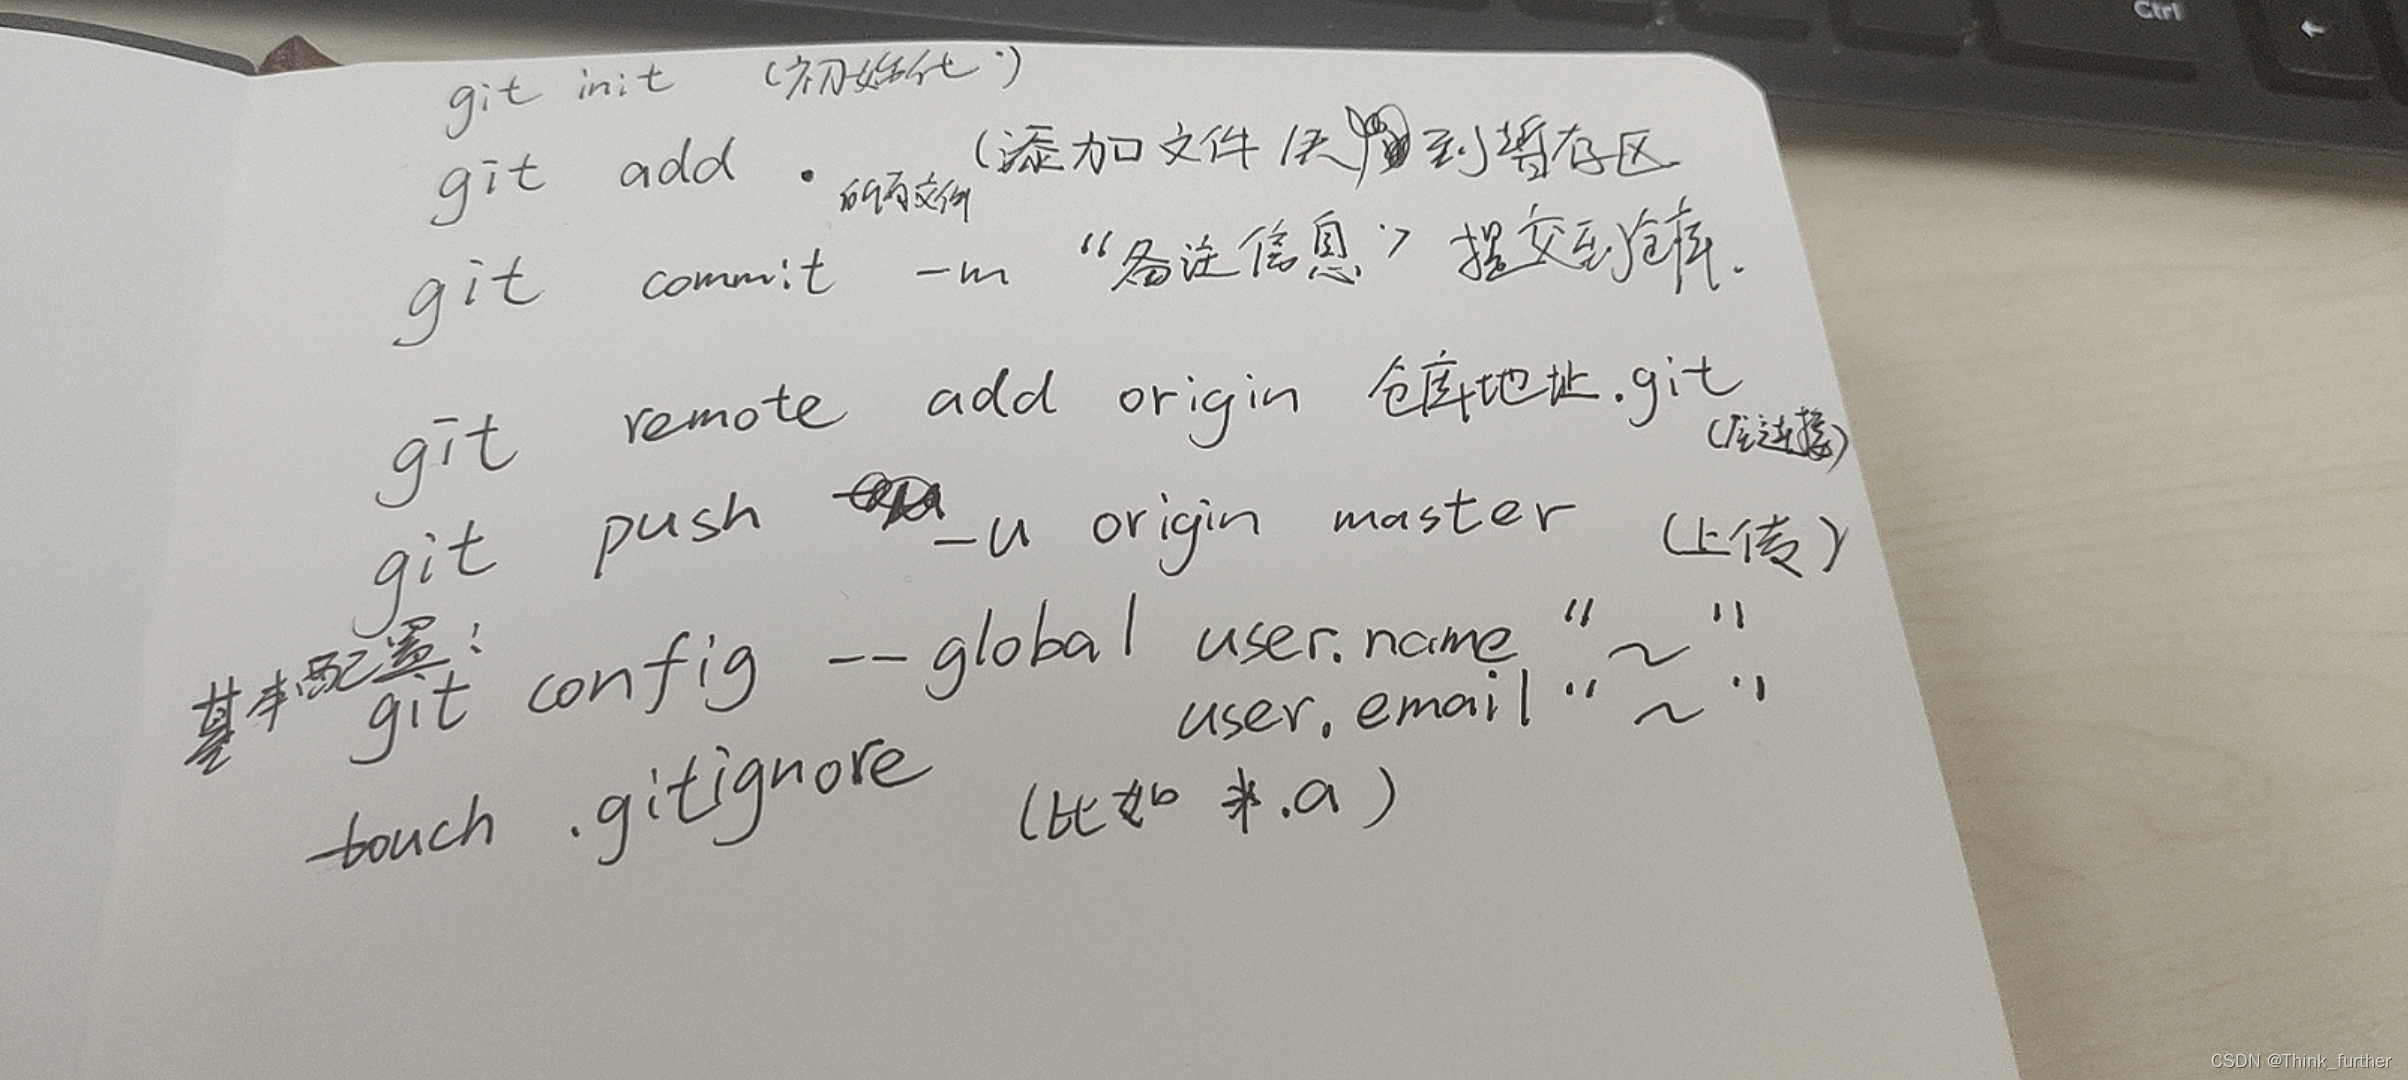 Ctrl
←
git init (初始化)
git add . 所有文件 (添加文件 到暂存区
git commit -m "备注信息" 提交到仓库.
git remote add origin 仓库地址.git
(库连接)
git push -u origin master (上传)
基本配置:
git config --global user.name "~"
user.email "~"
touch .gitignore (比如 *.a)
CSDN @Think_further